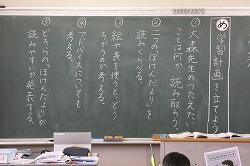 め 学習計画を立てよう
① 大森先生のつたえたい
ことは何か、読み取ろう
② 二つの「ほけんだより」を
読みくらべる。
③ 絵や表を使うと、どう
ちがうのか考える。
④ アドバイスについても
考える。
⑤ どちらの「ほけんだより」が
読みやすいか発表する。